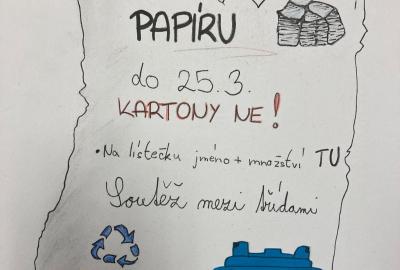 PAPÍRU
do 25.3.
KARTONY NE!
• Na lístečku jméno + množství TU
Soutěž mezi třídami